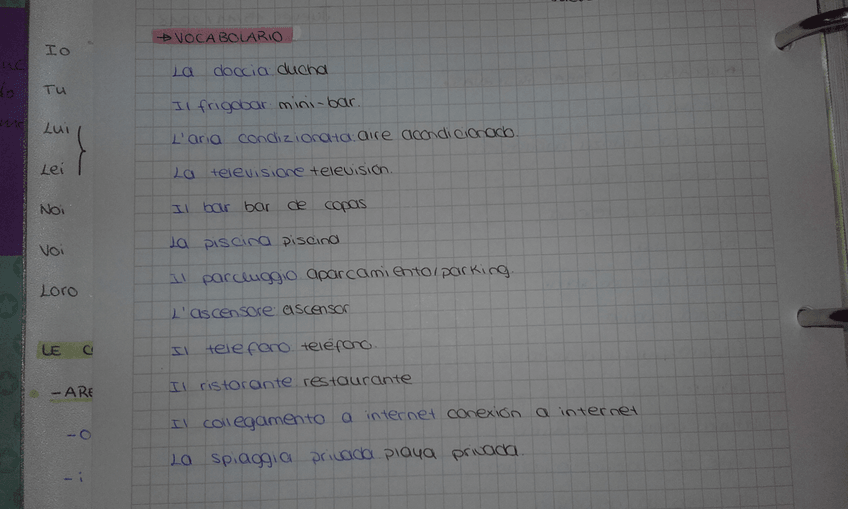 Io
Tu
Lui
Lei
Noi
Voi
Loro
LE C
-ARE
-O
-i
→ VOCABOLARIO
La doccia ducha
Il frigobar mini-bar.
L'aria condizionata: aire acondicionado.
La televisione television.
Il bar bar de copas
La piscina piscina
Il parcheggio aparcamiento/parking.
L'ascensore ascensor
Il telefono teléfono.
Il ristorante restaurante
Il collegamento a internet conexión a internet
La spiaggia privada playa privada.